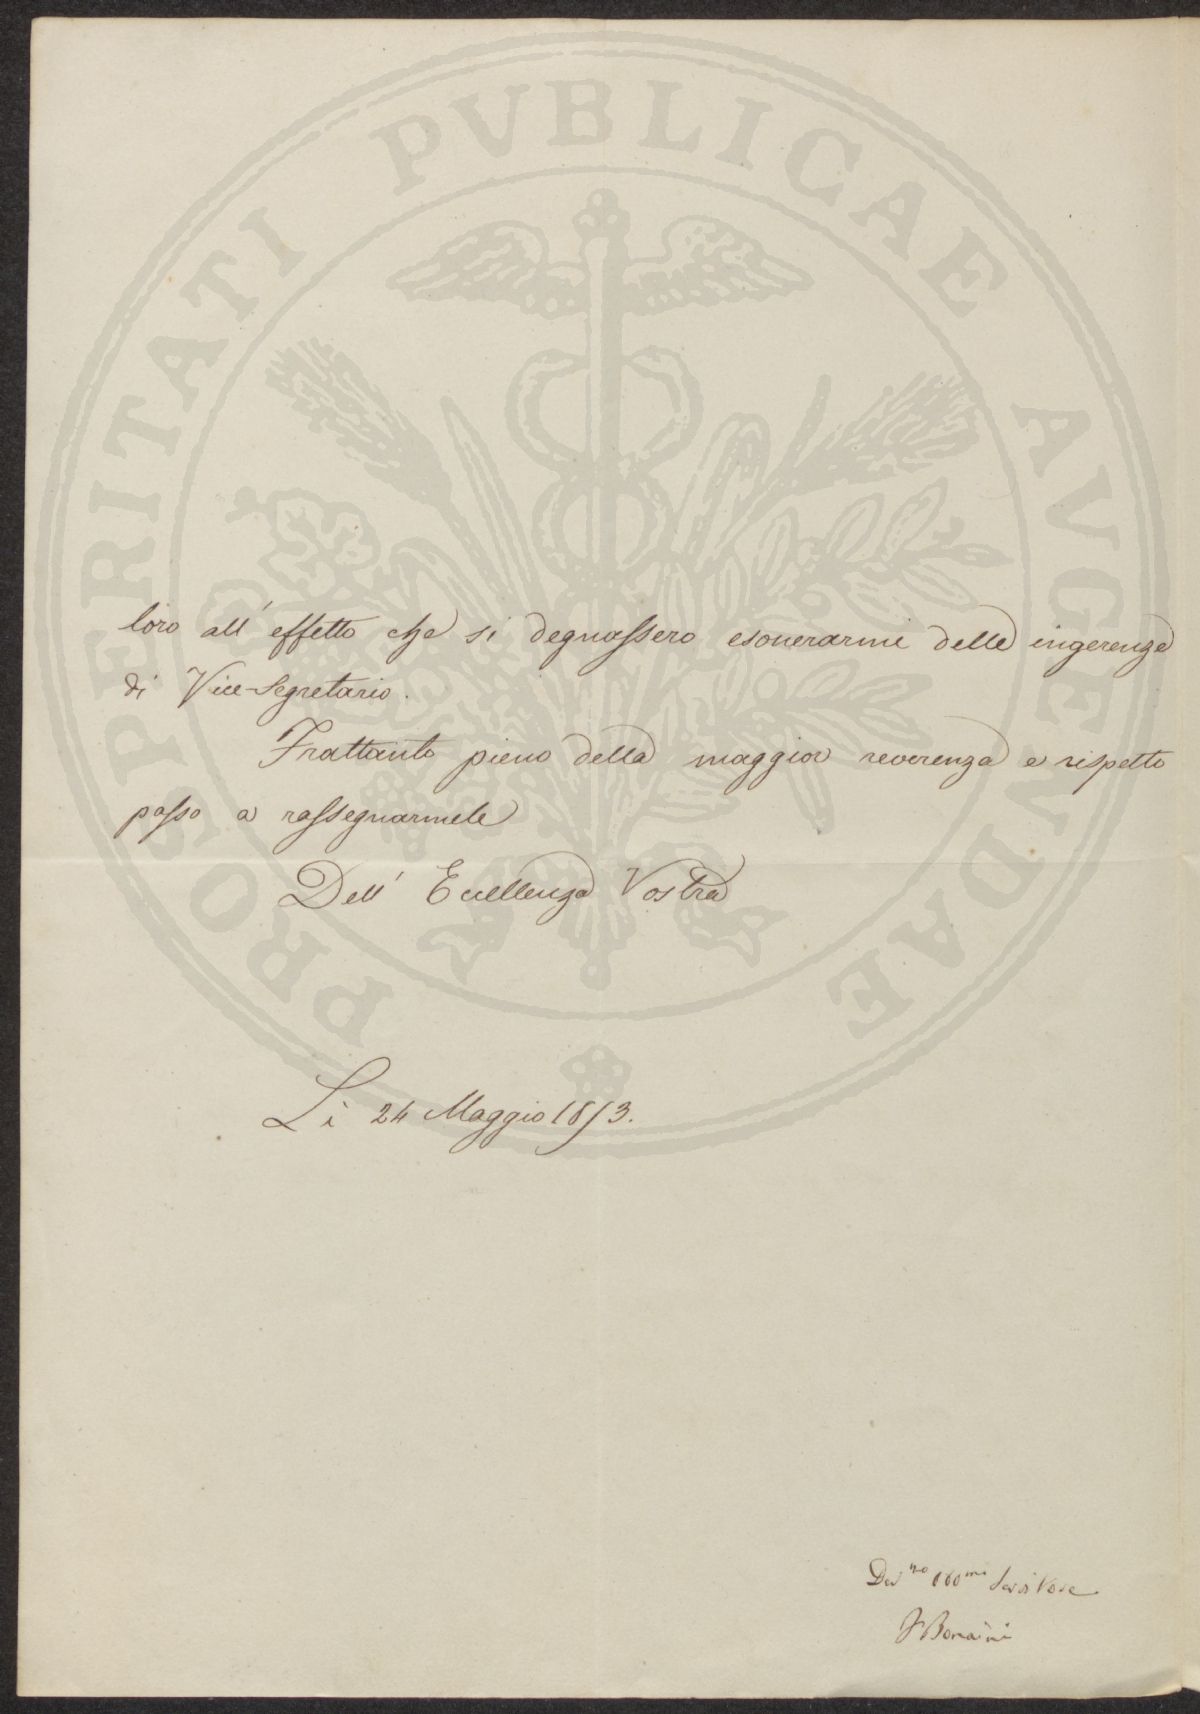 PROSPERITATI PVBLICAE AVGENDAE
loro all' effetto che si degnassero esonerarmi delle ingerenze
di Vice-Segretario.
Frattanto pieno della maggior reverenza e rispetto
passo a rassegnarmele
Dell' Eccellenza Vostra
Lì 24 Maggio 1853.
Dev.mo Obb.mo Servitore
F Bonaini